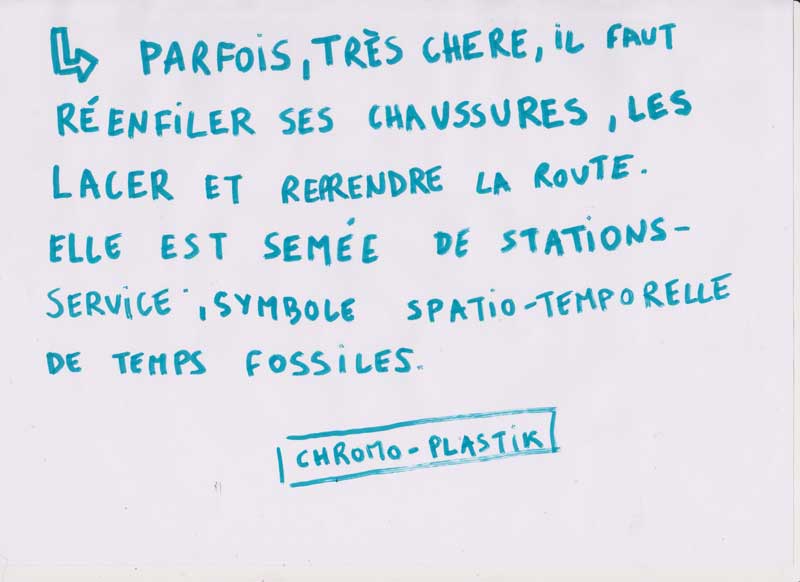 PARFOIS, TRÈS CHERE, IL FAUT
RÉENFILER SES CHAUSSURES, LES
LACER ET REPRENDRE LA ROUTE.
ELLE EST SEMÉE DE STATIONS-
SERVICE, SYMBOLE SPATIO-TEMPORELLE
DE TEMPS FOSSILES.
CHROMO-PLASTIK